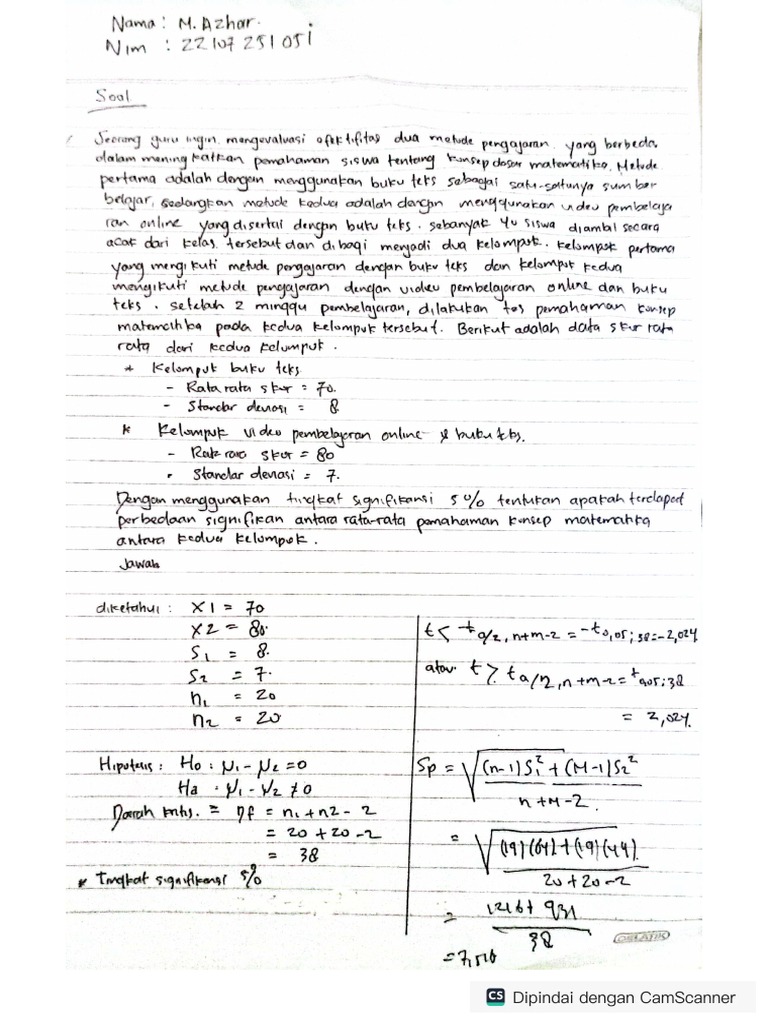 Nama : M. Azhar.
Nim : 22107251051
Soal
Seorang guru ingin mengevaluasi efektifitas dua metode pengajaran yang berbeda
dalam meningkatkan pemahaman siswa tentang konsep dasar matematika. Metode
pertama adalah dengan menggunakan buku teks sebagai satu-satunya sumber
belajar, sedangkan metode kedua adalah dengan menggunakan video pembelaja
ran online yang disertai dengan buku teks. sebanyak 40 siswa diambil secara
acak dari kelas tersebut dan dibagi menjadi dua kelompok. kelompok pertama
yang mengikuti metode pengajaran dengan buku teks dan kelompok kedua
mengikuti metode pengajaran dengan video pembelajaran online dan buku
teks. setelah 2 minggu pembelajaran, dilakukan tes pemahaman konsep
matematika pada kedua kelompok tersebut. Berikut adalah data skor rata
rata dari kedua kelompok.
* Kelompok buku teks
- Rata rata skor = 70.
- Standar deviasi = 8
* Kelompok video pembelajaran online & buku teks.
- Rata rata skor = 80
- Standar deviasi = 7.
Dengan menggunakan tingkat signifikansi 5% tentukan apakah terdapat
perbedaan signifikan antara rata-rata pemahaman konsep matematika
antara kedua kelompok.
Jawab
diketahui : X1 = 70
X2 = 80.
S1 = 8.
S2 = 7.
n1 = 20
n2 = 20
Hipotesis : Ho : μ1 - μ2 = 0
Ha : μ1 - μ2 ≠ 0
Daerah kritis. = Df = n1 + n2 - 2
= 20 + 20 - 2
= 38
* Tingkat signifikansi 5%
t < -t a/2, n+m-2 = -t0,05; 38 = -2,024
atau t > t a/2, n+m-2 = t 0,05; 38
= 2,024.
Sp = √(n-1)S1² + (M-1)S2²
n + M - 2.
= √(19)(64) + (19)(49).
20 + 20 - 2
= 1216 + 931
38
CS Dipindai dengan CamScanner